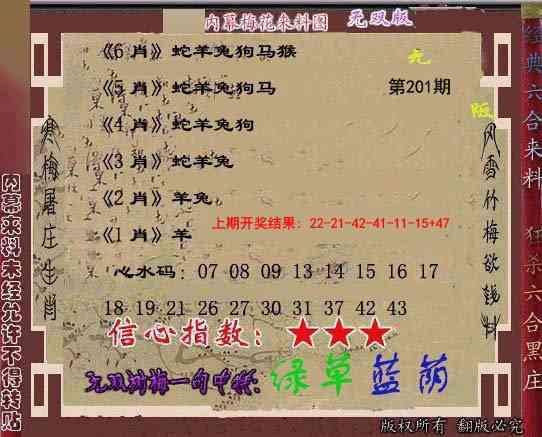 内幕梅花来料图 无双版
《6 肖》蛇羊兔狗马猴
《5 肖》蛇羊兔狗马
第201期
《4 肖》蛇羊兔狗
《3 肖》蛇羊兔
《2 肖》羊兔
上期开奖结果：22-21-42-41-11-15+47
《1 肖》羊
心水码：07 08 09 13 14 15 16 17
18 19 21 26 27 30 31 37 42 43
信心指数：★★★
无双浏梅一句中特:绿草蓝荫
寒梅屠庄生肖
风雪竹梅欲钱料
内幕来料未经允许不得转贴
经典六合来料
狂杀六合黑庄
版权所有 翻版必究